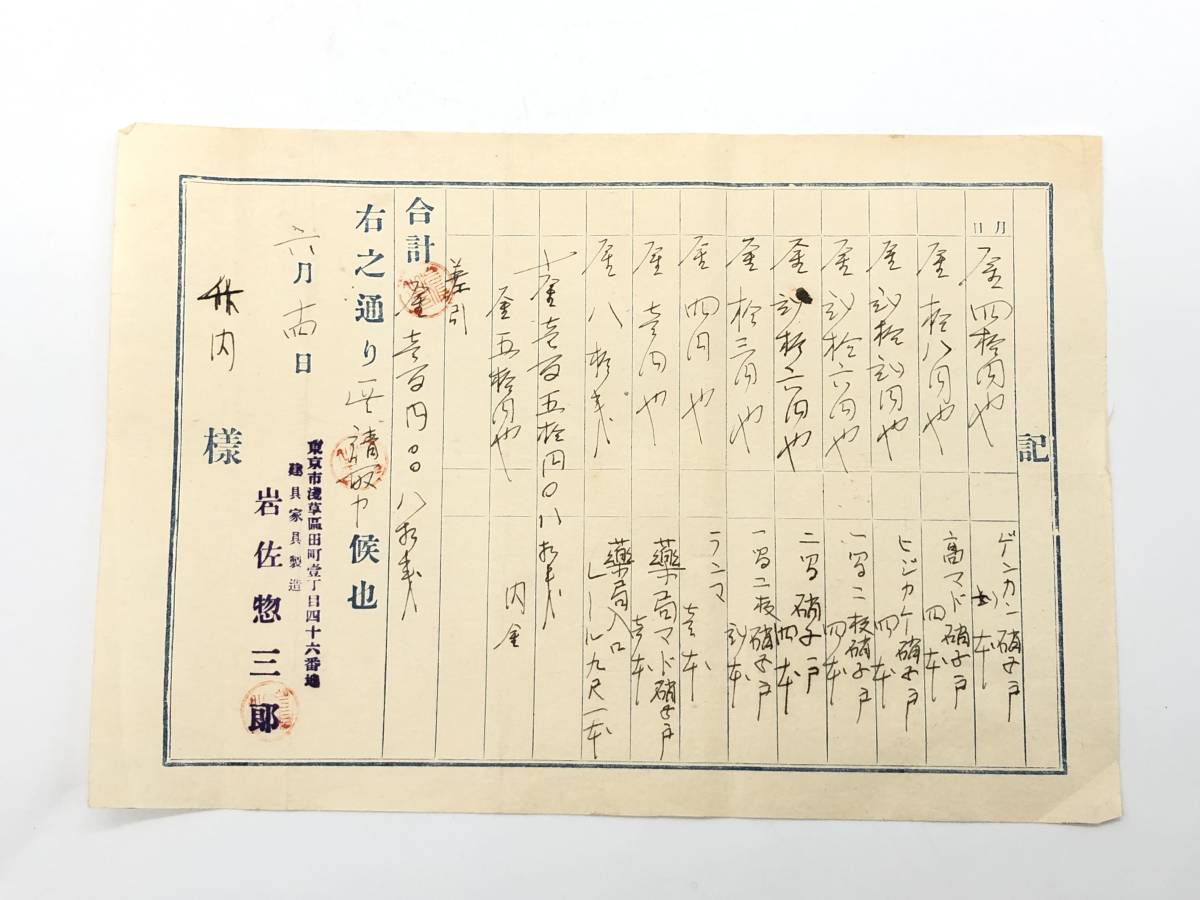 記
月
日
金四拾円也
ゲンカン硝子戸
本
金拾八円也
高マド硝子戸
四本
金弐拾弐円也
ヒジカケ硝子戸
四本
金弐拾六円也
一号二枚硝子戸
四本
金弐拾六円也
二号硝子戸
四本
金拾三円也
一号二枚硝子戸
弐本
金四円也
ランマ
壱本
金壱円也
藥局マド硝子戸
壱本
金八拾戋
藥局入口
レール九尺一本
〆金壱百五拾円〇八拾戋
金五拾円也
内金
差引
合計
金壱百円〇〇八拾戋
右之通り正ニ請取候也
六月十四日
東京市淺草區田町壹丁目四十六番地
建具家具製造
岩佐惣三郎
竹内様